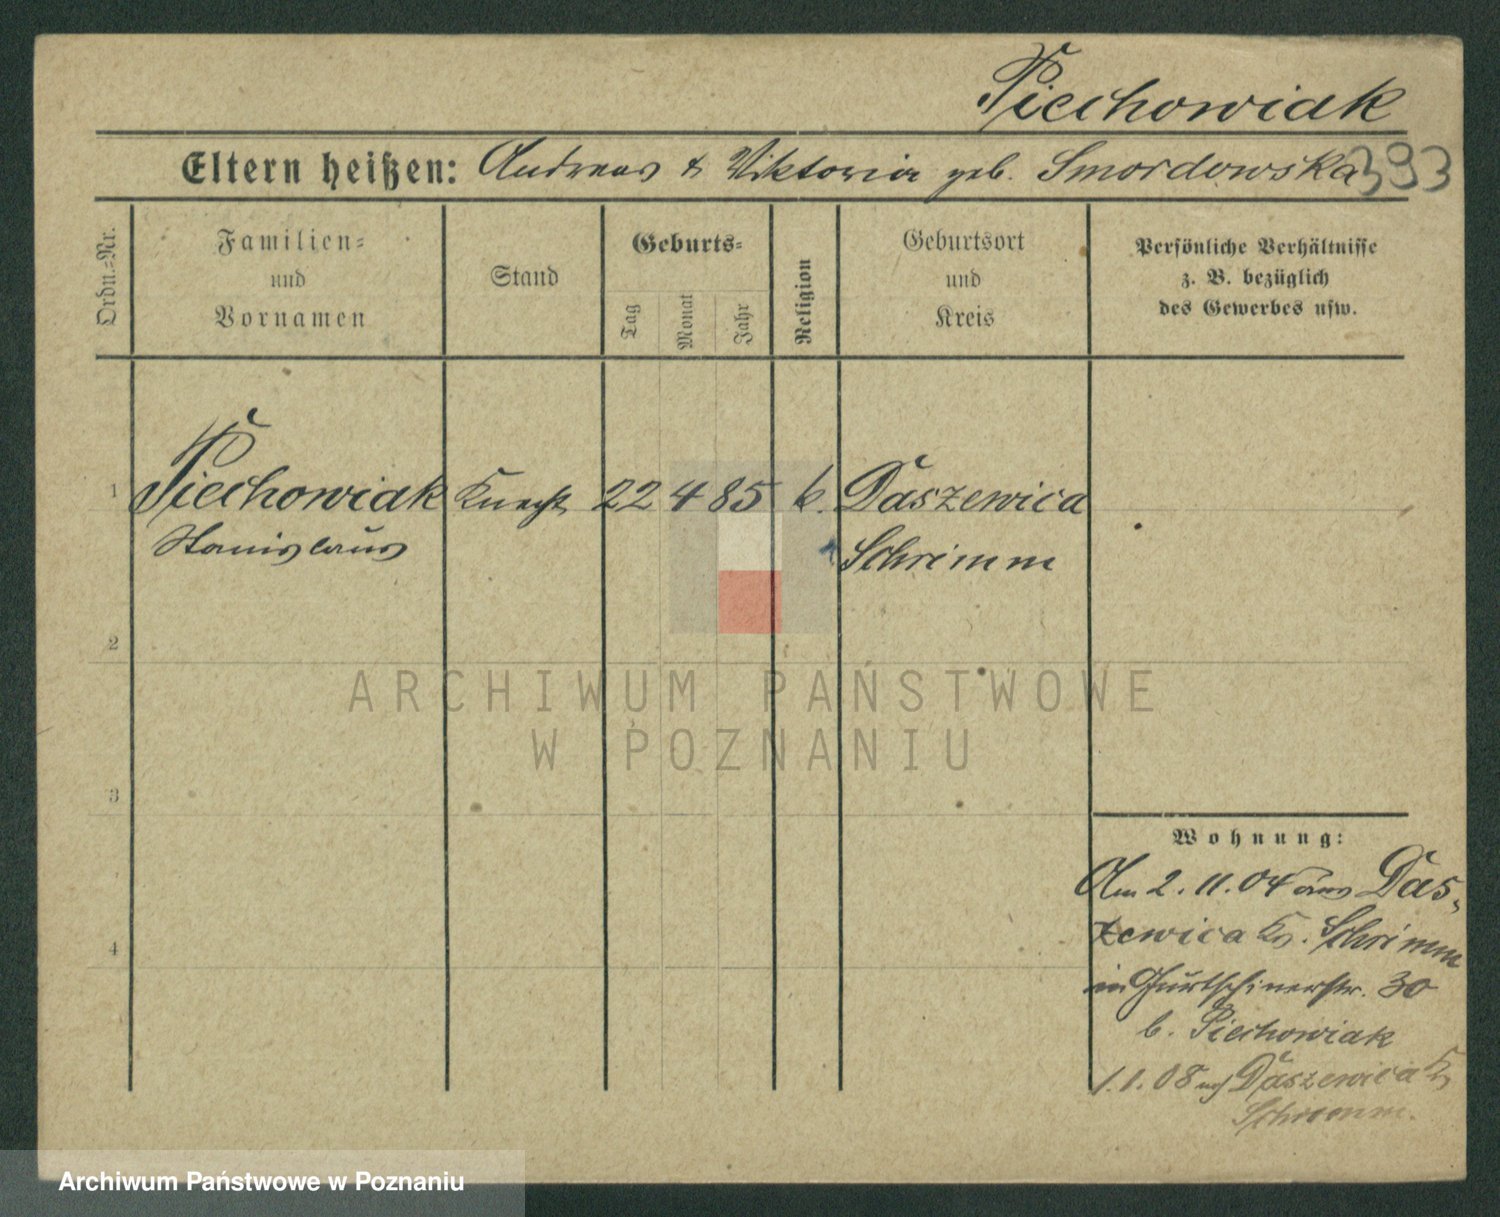 Piechowiak
Eltern heißen: Andreas & Viktoria geb. Smordowska
393
Ordn.-Nr.
Familien-
und
Vornamen
Stand
Geburts-
Tag
Monat
Jahr
Religion
Geburtsort
und
Kreis
Persönliche Verhältnisse
z. B. bezüglich
des Gewerbes usw.
1 Piechowiak Knecht 22 4 85 k. Daszewica
Stanislaus Schrimm
2
ARCHIWUM PAŃSTWOWE
W POZNANIU
3
Wohnung:
Am 2. 11. 04 aus Das-
zewica Kr. Schrimm
4
in Gurtschinerstr. 30
b. Piechowiak
1.1.08 Daszewica Kr
Schrimm.
Archiwum Państwowe w Poznaniu